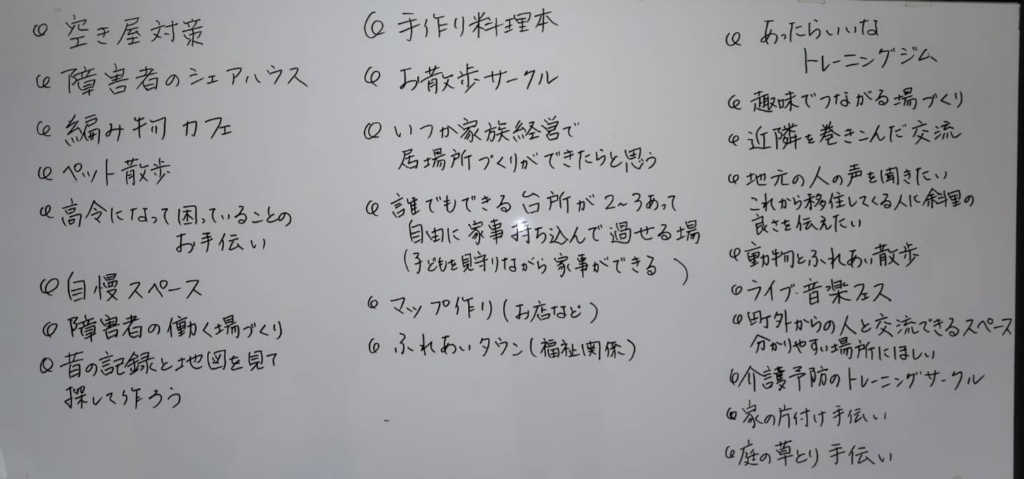 空き屋対策
障害者のシェアハウス
編み物カフェ
ペット散歩
高令になって困っていることの
お手伝い
自慢スペース
障害者の働く場づくり
昔の記録と地図を見て
探して作ろう
手作り料理本
お散歩サークル
いつか家族経営で
居場所づくりができたらと思う
誰でもできる台所が2~3あって
自由に家事持ち込んで過せる場
(子どもを見守りながら家事ができる)
マップ作り(お店など)
ふれあいタウン(福祉関係)
あったらいいな
トレーニングジム
趣味でつながる場づくり
近隣を巻きこんだ交流
地元の人の声を聞きたい
これから移住してくる人に余里の
良さを伝えたい
動物とふれあい散歩
ライブ・音楽フェス
町外からの人と交流できるスペース
分かりやすい場所にほしい
介護予防のトレーニングサークル
家の片付け手伝い
庭の草とり手伝い